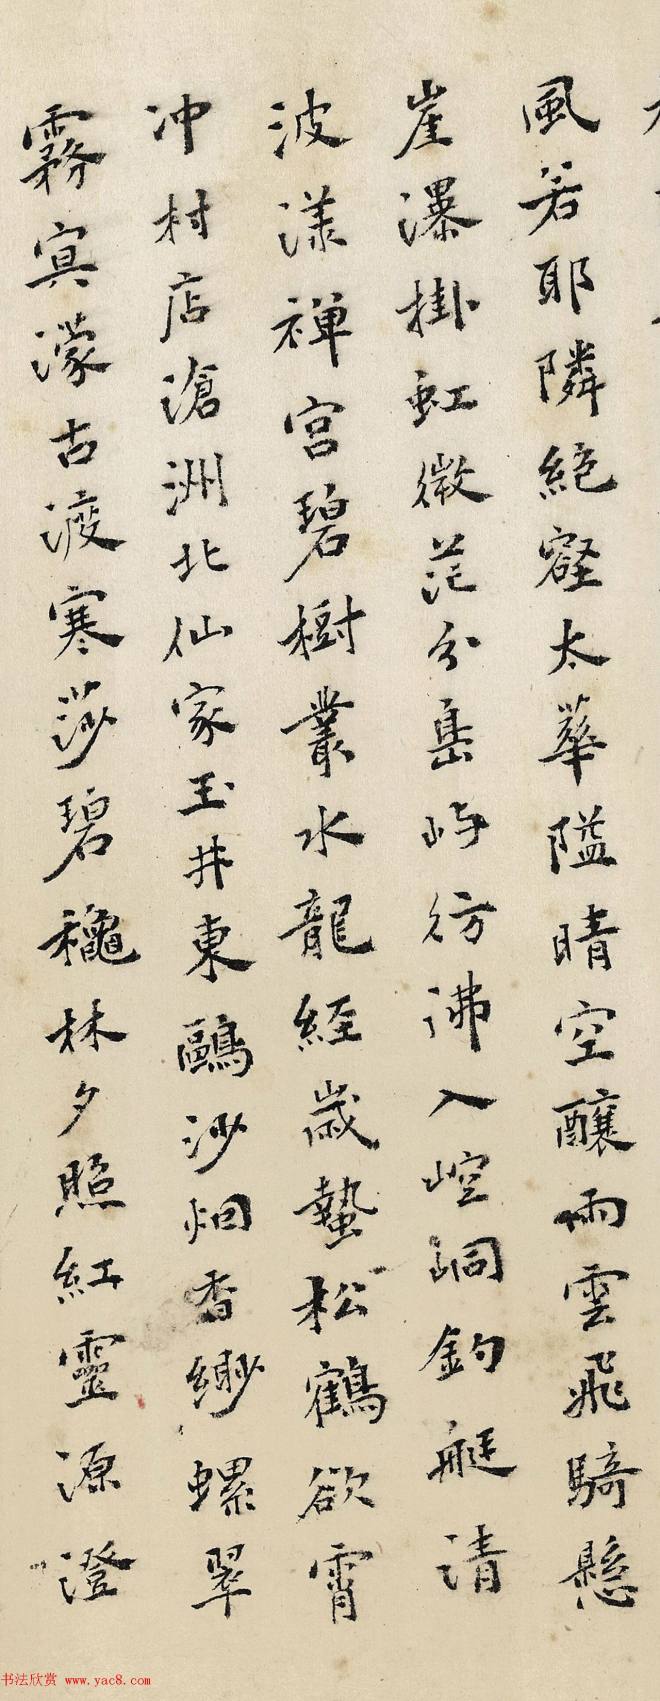 風若耶隣絕壑太華隘晴空釀雨雲飛騎懸
崖瀑掛虹微茫分島嶼彷彿入崆峒釣艇清
波漾禅宮碧樹叢水龍經歲蟄松鶴欲霄
冲村店滄洲北仙家玉井東鷗沙烟香緲螺翠
霧寞濛古渡寒莎碧穐林夕照紅靈源澄
书法欣赏 www.yac8.com